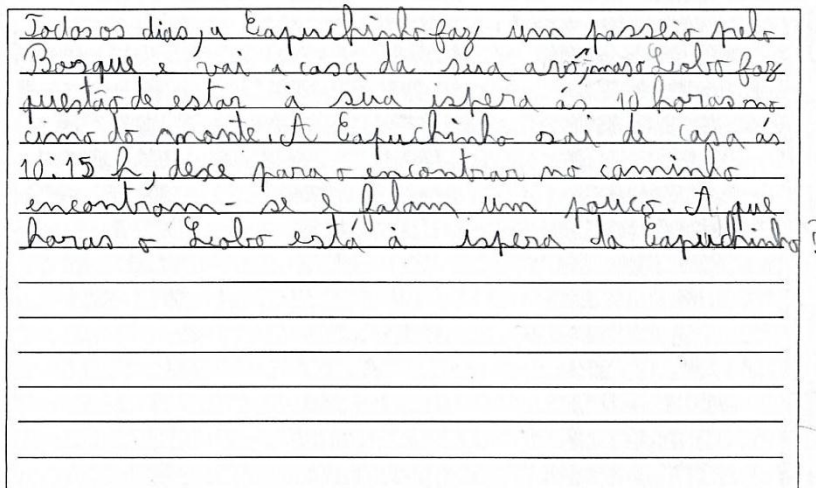 Todos os dias, a Capuchinho faz um passeio pelo
Bosque e vai a casa da sua avó, mas o Lobo faz
questão de estar à sua ispera ás 10 horas no
cimo do monte. A Capuchinho sai de casa ás
10:15 h, dese para o encontrar no caminho
encontram-se e falam um pouco. A que
horas o Lobo está à ispera da Capuchinho?